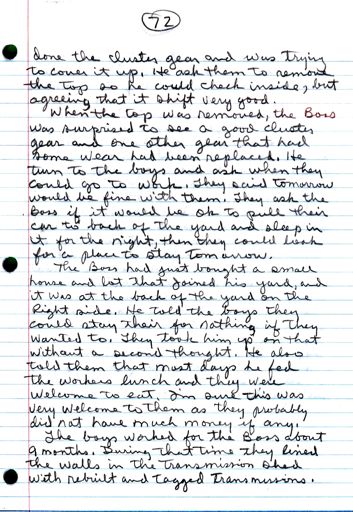 72
done the cluster gear and was trying
to cover it up. He ask them to remove
the top so he could check inside, but
agreeing that it shift very good.
When the top was removed, the Boss
was surprised to see a good cluster
gear and one other gear that had
some wear had been replaced. He
turn to the boys and ask when they
could go to work. They said tomorrow
would be fine with them. They ask the
Boss if it would be ok to pull their
car to back of the yard and sleep in
it for the night, then they could look
for a place to stay tomorrow.
The Boss had just bought a small
house and lot that joined his yard, and
it was at the back of the yard on the
Right side. He told the boys they
could stay their for nothing if they
wanted to. They took him up on that
without a second thought. He also
told them that most days he fed
the workers lunch and they were
welcome to eat. I'm sure this was
very welcome to them as they probably
did not have much money if any.
The boys worked for the Boss about
9 months. During that time they lined
the walls in the Transmission shed
with rebuilt and Tagged Transmissions.